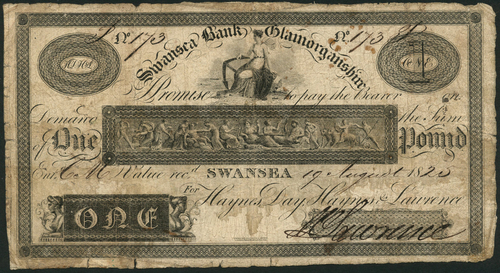 No. 173 No. 173
Swansea Bank Glamorganshire
H.D.H.&L. ONE 1
Promise to pay the Bearer on
Demand the Sum
of One Pound
Ent. Value recd. SWANSEA 19 August 1825
For Haynes, Day, Haynes & Lawrence
ONE
Lawrence